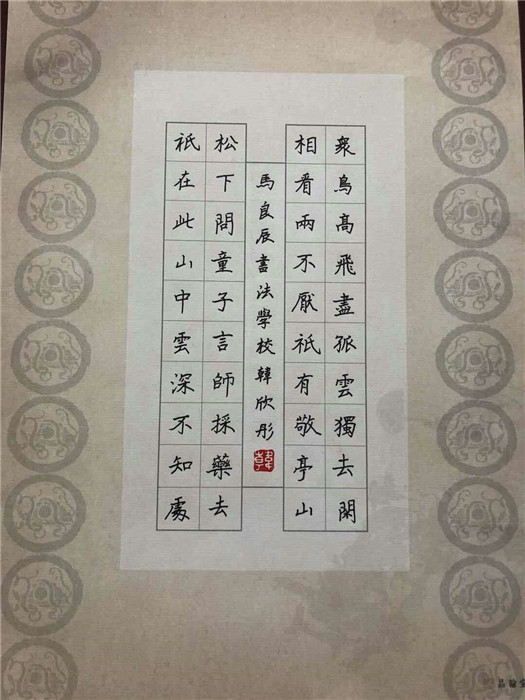 衆鳥高飛盡孤雲獨去閑
相看兩不厭祇有敬亭山
馬良辰書法學校韓欣彤
韓
松下問童子言師採藥去
祇在此山中雲深不知處